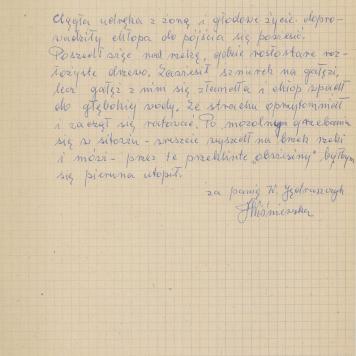 Ciągła udręka z żoną i głodowe życie dopro-
wadziły chłopa do pójścia się powiesić.
Poszedł więc nad rzekę, gdzie rosło stare roz-
łożyste drzewo. Zawiesił sznurek na gałęzi,
lecz gałąź z nim się złamała i chłop wpadł
do głębokiej wody. Ze strachu oprzytomniał
i zaczął się ratować. Po mozolnym grzebaniu
się w sitowiu - wreszcie wyszedł na brzek rzeki
i mówi - przez te przeklinte „obwiesiny" byłbym
się pieruna utopił.
za panią K. Jędraszczyk